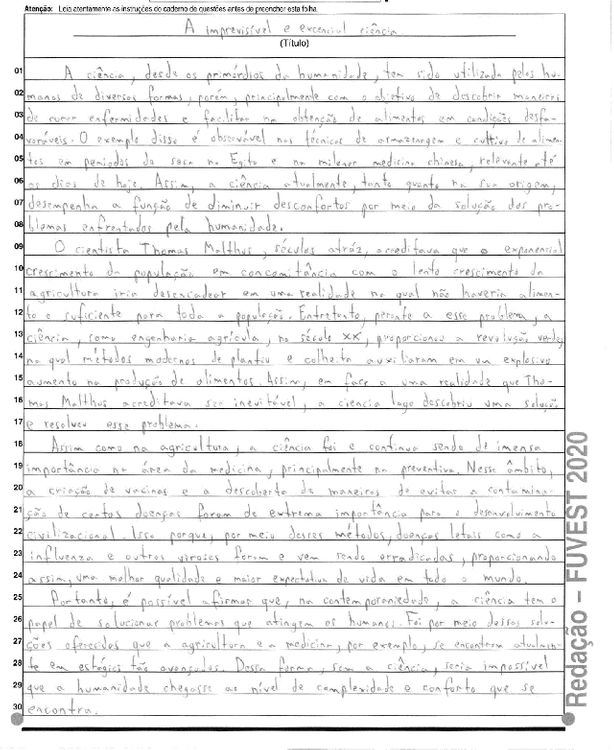 Atenção: Leia atentamente as instruções do caderno de questões antes de preencher esta folha.
A imprevisível e excencial ciência
(Título)
01 A ciência, desde os primórdios da humanidade, tem sido utilizada pelos hu-
02 manos de diversas formas, porém, principalmente com o objetivo de descobrir maneiras
03 de curar enfermidades e facilitar na obtenção de alimentos em condições desfa-
04 voráveis. O exemplo disso é observável nas técnicas de armazenagem e cultivo de alimen-
05 tos em períodos da seca no Egito e na milenar medicina chinesa, relevante até
06 os dias de hoje. Assim, a ciência atualmente, tanto quanto na sua origem,
07 desempenha a função de diminuir desconfortos por meio da solução dos pro-
08 blemas enfrentados pela humanidade.
09 O cientista Thomas Malthus, séculos atráz, acreditava que o exponencial
10 crescimento da população em concomitância com o lento crescimento da
11 agricultura iria desencadear em uma realidade na qual não haveria alimen-
12 to o suficiente para toda a população. Entretanto, perante a esse problema, a
13 ciência, como engenharia agrícula, no século XX, proporcionou a revolução verde,
14 na qual métodos modernos de plantiu e colheita auxiliaram em um explosivo
15 aumento na produção de alimentos. Assim, em face a uma realidade que Tho-
16 mas Malthus acreditava ser inevitável, a ciencia logo descobriu uma solução
17 e resolveu esse problema.
18 Assim como na agricultura, a ciência foi e continua sendo de imensa
19 importância na área da medicina, principalmente na preventiva. Nesse âmbito,
20 a criação de vacinas e a descoberta de maneiras de evitar a contamina-
21 ção de certas doenças foram de extrema importância para o desenvolvimento
22 civilizacional. Isso porque, por meio desses métodos, doenças letais como a
23 influenza e outras viroses foram e vem sendo erradicadas, proporcionando
24 assim, uma melhor qualidade e maior expectativa de vida em todo o mundo.
25 Portanto, é possível afirmar que, na contemporaniedade, a ciência tem o
26 papel de solucionar problemas que atingem os humanos. Foi por meio dessas solu-
27 ções oferecidas que a agricultura e a medicina, por exemplo, se encontram atualmen-
28 te em estágios tão avançados. Dessa forma, sem a ciência, seria impossível
29 que a humanidade chegasse ao nível de complexidade e conforto que se
30 encontra.
Redação – FUVEST 2020